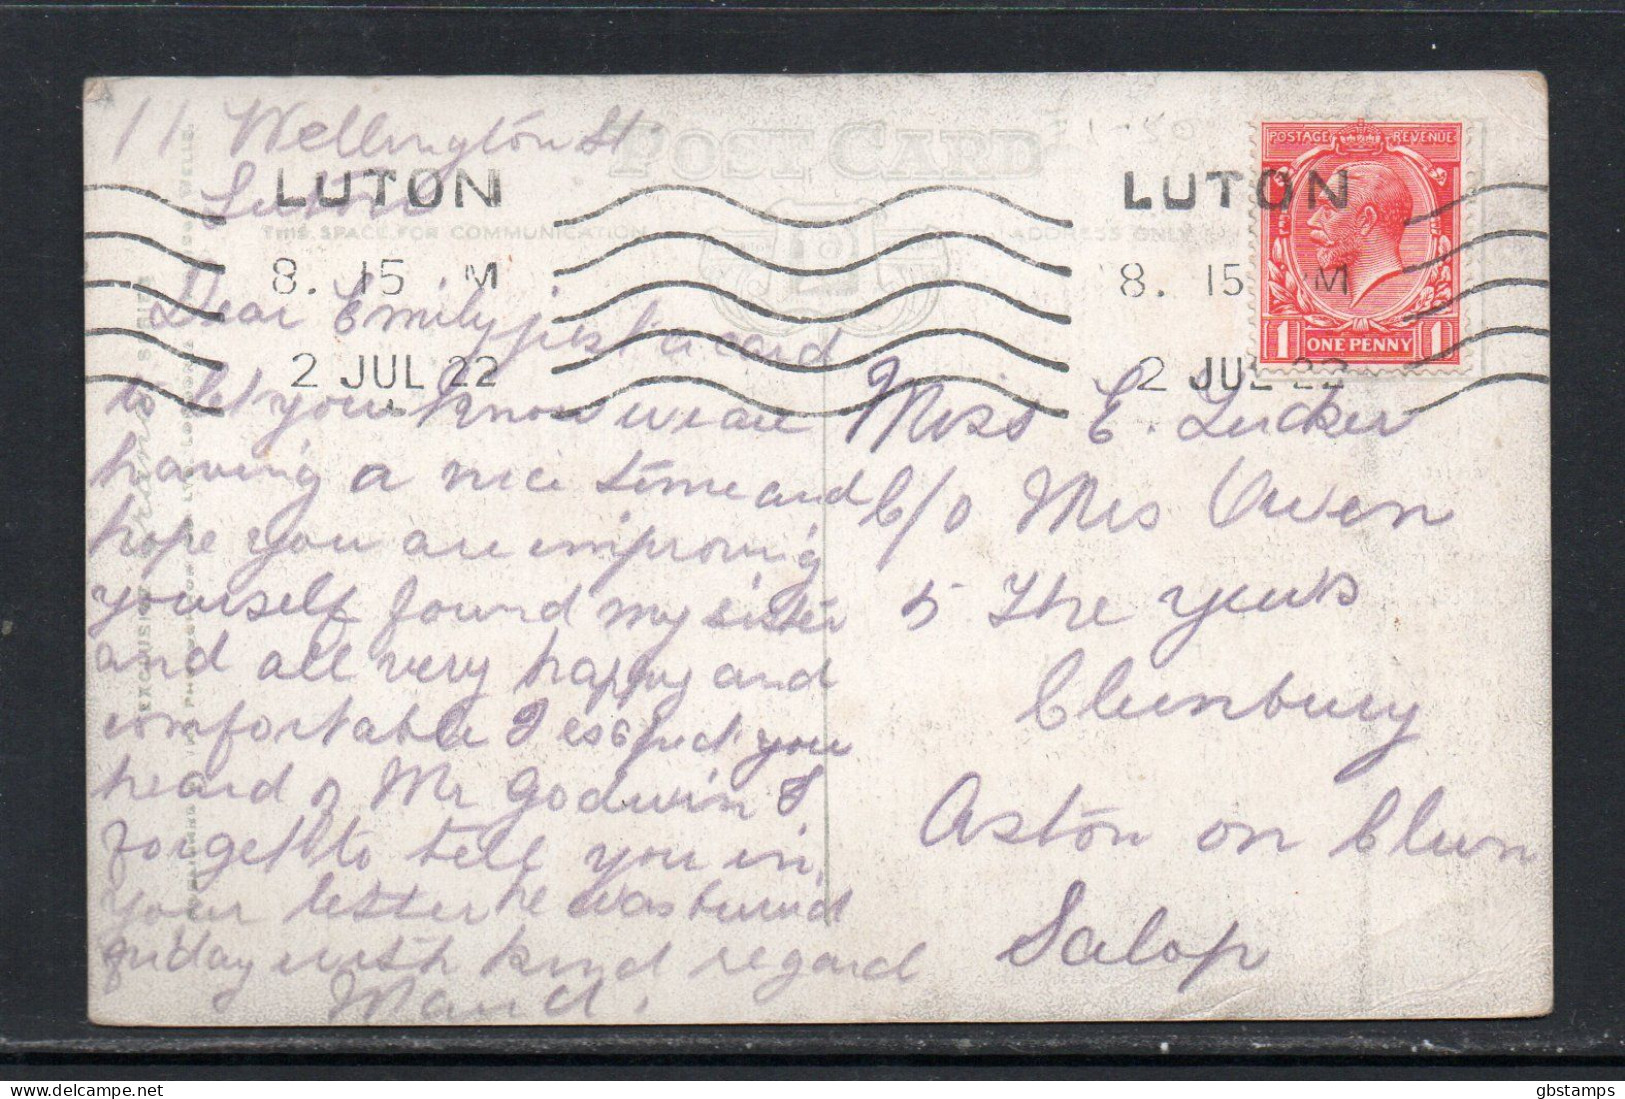 11 Wellington St
Luton
POST CARD
THIS SPACE FOR COMMUNICATION
ADDRESS ONLY
LUTON
8. 15 M
2 JUL 22
LUTON
8. 15 M
2 JUL 22
POSTAGE REVENUE
1 ONE PENNY 1
Dear Emily just a card
to let you know we are
having a nice time and
hope you are improving
yourself found my sister
and all very happy and
comfortable I esspect you
heard of Mr Godwin I
forget to tell you in
your letter he was buried
friday with kind regard
Maud.
Miss E. Tucker
C/o Mrs Owen
5 The
Clunbury
Aston on Clun
Salop
gbstamps